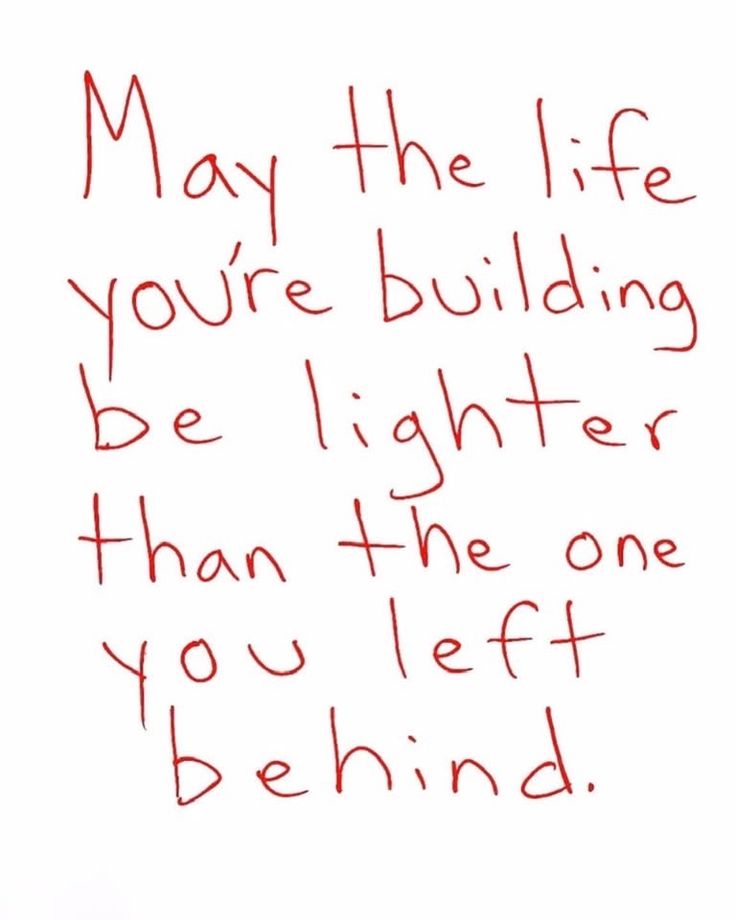 May the life
you're building
be lighter
than the one
you left
behind.